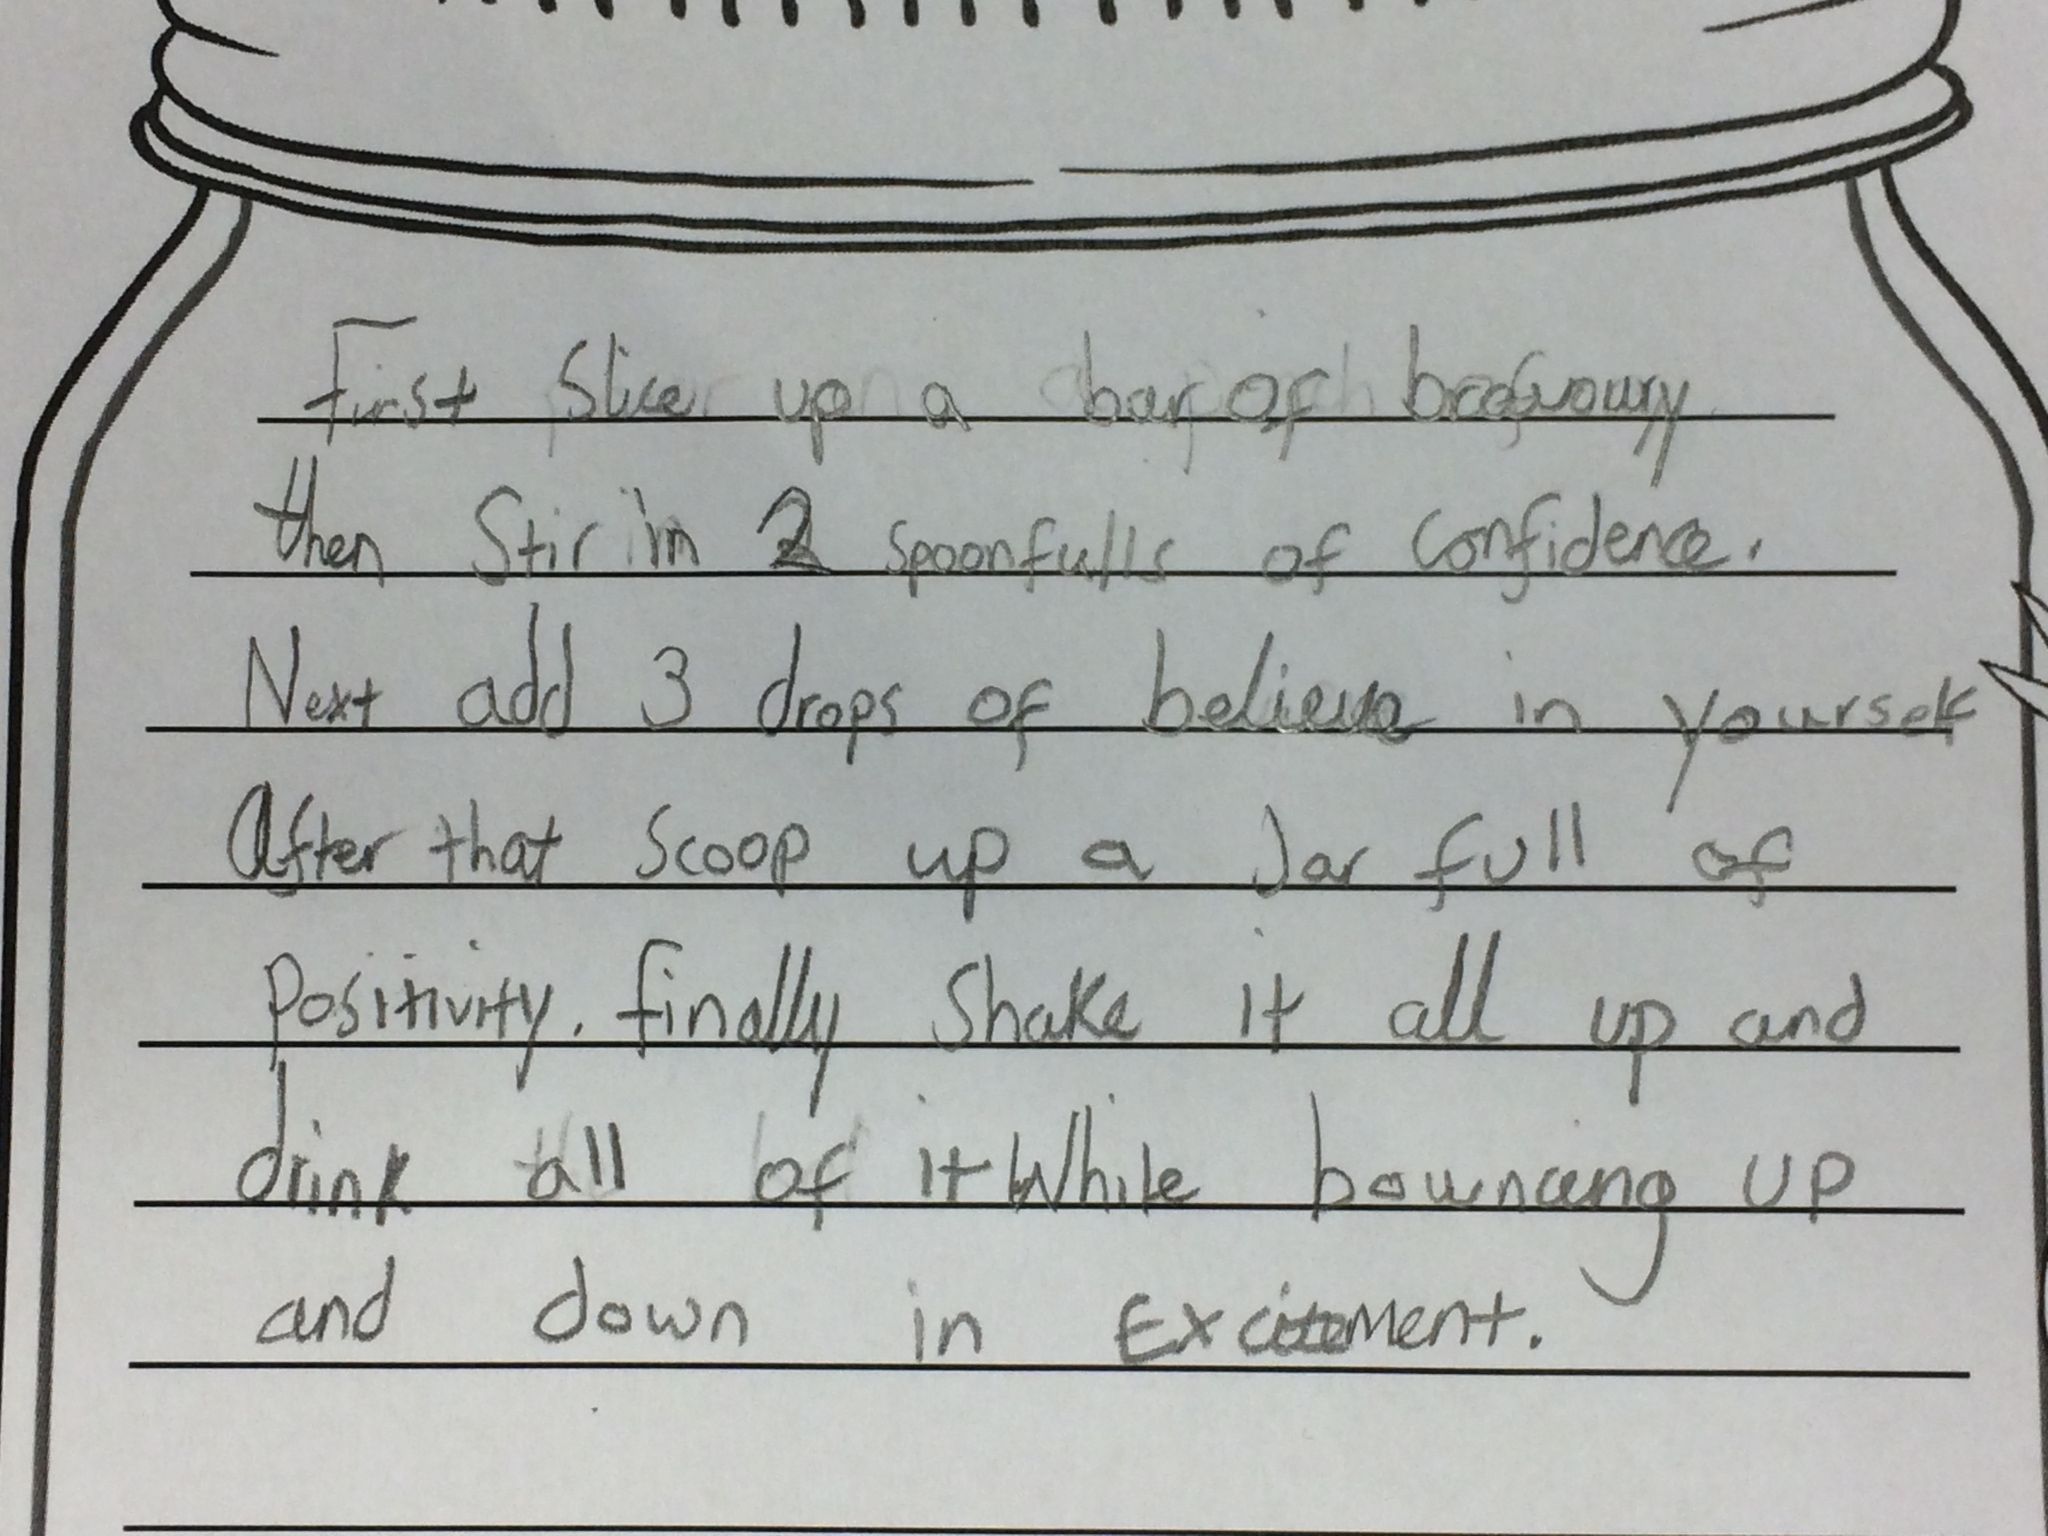 First Slice up a bar of
then Stir in 2 spoonfulls of confidence.
Next add 3 drops of believe in yourself
After that scoop up a Jar full of
Positivity. finally Shake it all up and
drink all of it While bouncing up
and down in Excitement.